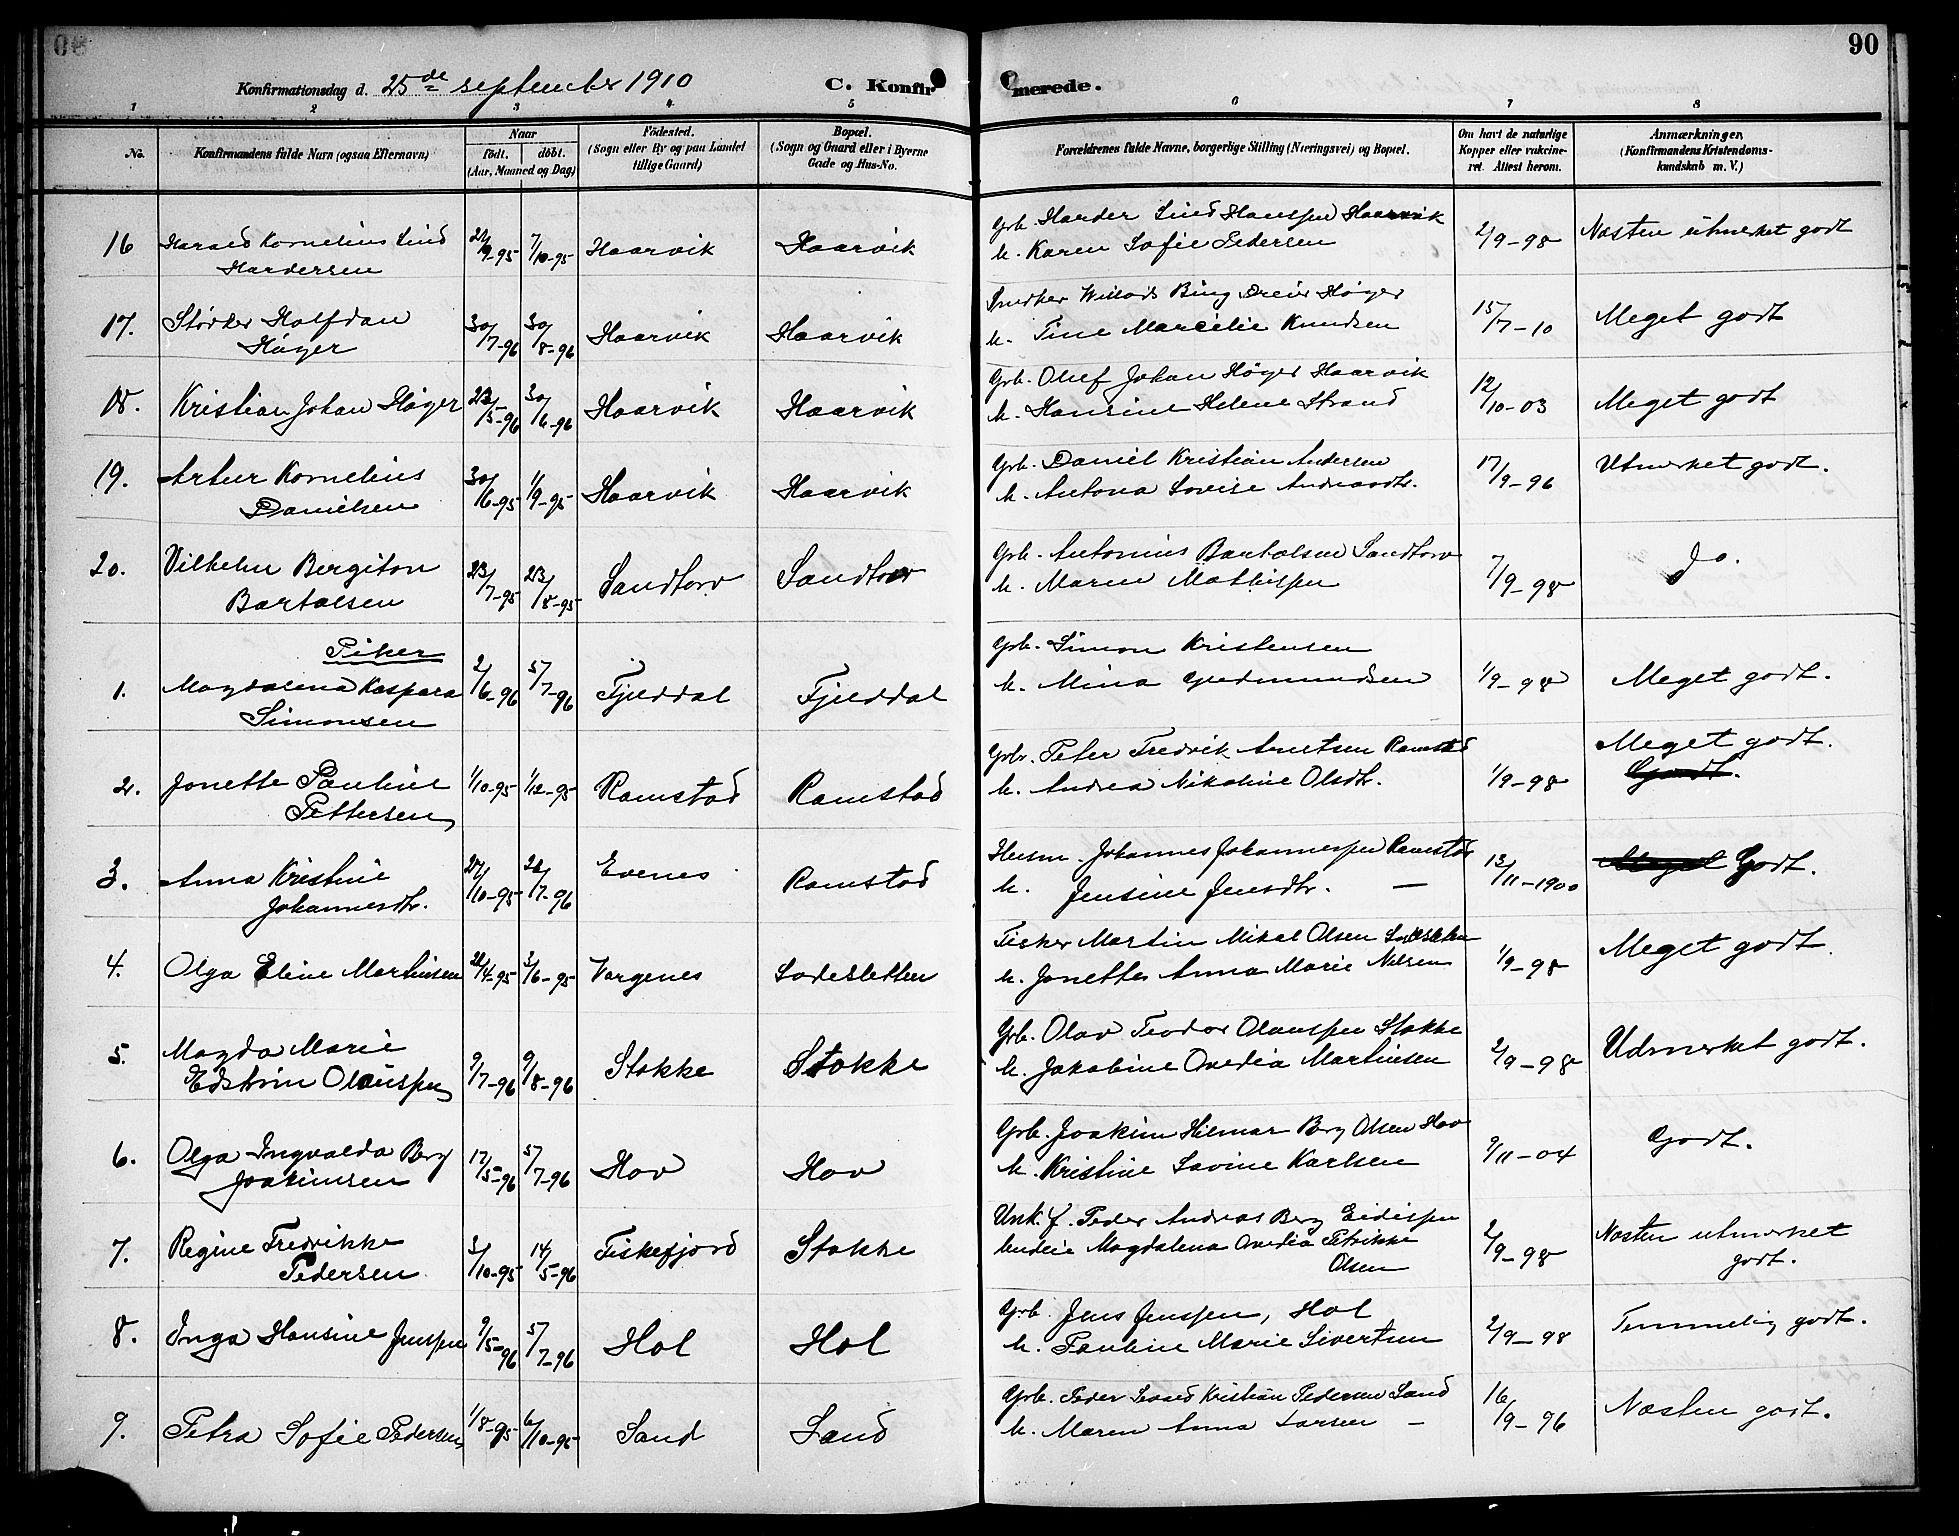 90
Konfirmationsdag d. 25de september 1910
C. Konfirmerede.
1 2 3 4 5 6 7 8
No.
Konfirmandens fulde Navn (ogsaa Efternavn)
Naar
født. døbt.
(Aar, Maaned og Dag)
Fødested.
(Sogn eller By og paa Landet
tillige Gaard)
Bopæl.
(Sogn og Gaard eller i Byerne
Gade og Hus-No.
Forældrenes fulde Navne, borgerlige Stilling (Næringsvei) og Bopæl.
Om havt de naturlige
Kopper eller vakcine-
ret. Attest herom.
Anmærkninger,
(Konfirmandens Kristendoms-
kundskab m. V.)
16 Harald Kornelius Lind
Hardersen
21/9-95 7/10-95 Haarvik Haarvik
Grb. Harder Lind Hanssen Haarvik
h. Karen Sofie Pedersen
2/9-98 Næsten utmerket godt
17. Størker Halfdan
Høyer
30/7-96 30/8-96 Haarvik Haarvik
Høyer
h. Tine Marcelie Knudsen
15/7-10 Meget godt
18. Kristian Johan Høyer 23/5-96 30/6-96 Haarvik Haarvik
Grb. Oluf Johan Høyer Haarvik
h. Hansine Helene Strand
12/10-03 Meget godt
19. Artur Kornelius
Danielsen
30/6-95 1/9-95 Haarvik Haarvik
Grb. Daniel Kristian Andersen
h. Antona Lovise
17/9-96 Utmerket godt.
20. Vilhelm Bergiton
Bartolsen
23/7-95 23/8-95 Sandtorv Sandtorv
Grb. Antonius Bartolsen Sandtorv
h. Maren Mathissen
7/9-98 Do.
Piker
1. Magdalena Kaspara
Simonsen
2/6-96 5/7-96 Fjelddal Fjelddal
Grb. Simon Kristensen
h. Mina Gudmundsen
1/9-98 Meget godt.
2. Jonette Pauline
Pettersen
1/10-95 1/12-95 Ramstad Ramstad
Grb. Peter Fredrik Arntsen Ramstad
h. Andrea Nikoline Olsdtr.
1/9-98 Meget godt.
Godt.
3. Anna Kristine
Johannesdtr.
/10-95 /7-96 Evenes Ramstad
Husm. Johannes Johannessen Ramstad
h. Jensine Jensdtr. —
13/11-1900 Meget Godt.
4. Olga Eline Martinsen /4-95 3/6-95 Vargenes Sodesletten
Fisker Martin Mikal Olsen Sodesletten
h. Jonette Anna Marie Nilsen
1/9-98 Meget godt.
5. Magda Marie
Edstrøm Olaussen
9/7-96 9/8-96 Stokke Stokke
Grb. Olav Teodor Olaussen Stokke
h. Jakobine Ovedia Martinsen
2/9-98 Udmerket godt.
6. Olga Ingvalda Berg
Joakimsen
17/5-96 5/7-96 Hov Hov
Grb. Joakim Hilmar Berg Olsen Hov
h. Kristine Lovine Karlsen
9/11-04 Godt.
7. Regine Fredrikke
Pedersen
3/10-95 14/5-96 Fiskefjord Stokke
Unk. f. Peder Andreas Berg Eidissen
Magdalena Ovedia Petrikke
Olsen
2/9-98 Næsten utmerket
godt.
8. Inga Hansine Jenssen 9/5-96 5/7-96 Hol Hol
Grb. Jens Jenssen, Hol
h. Pauline Marie Sivertsen
2/9-98 Temmelig godt.
9. Petra Sofie Pedersen 1/8-95 6/10-95 Sand Sand
Grb. Peder Kristian Pedersen Sand
h. Maren Anna Larsen —
16/9-96 Næsten godt.